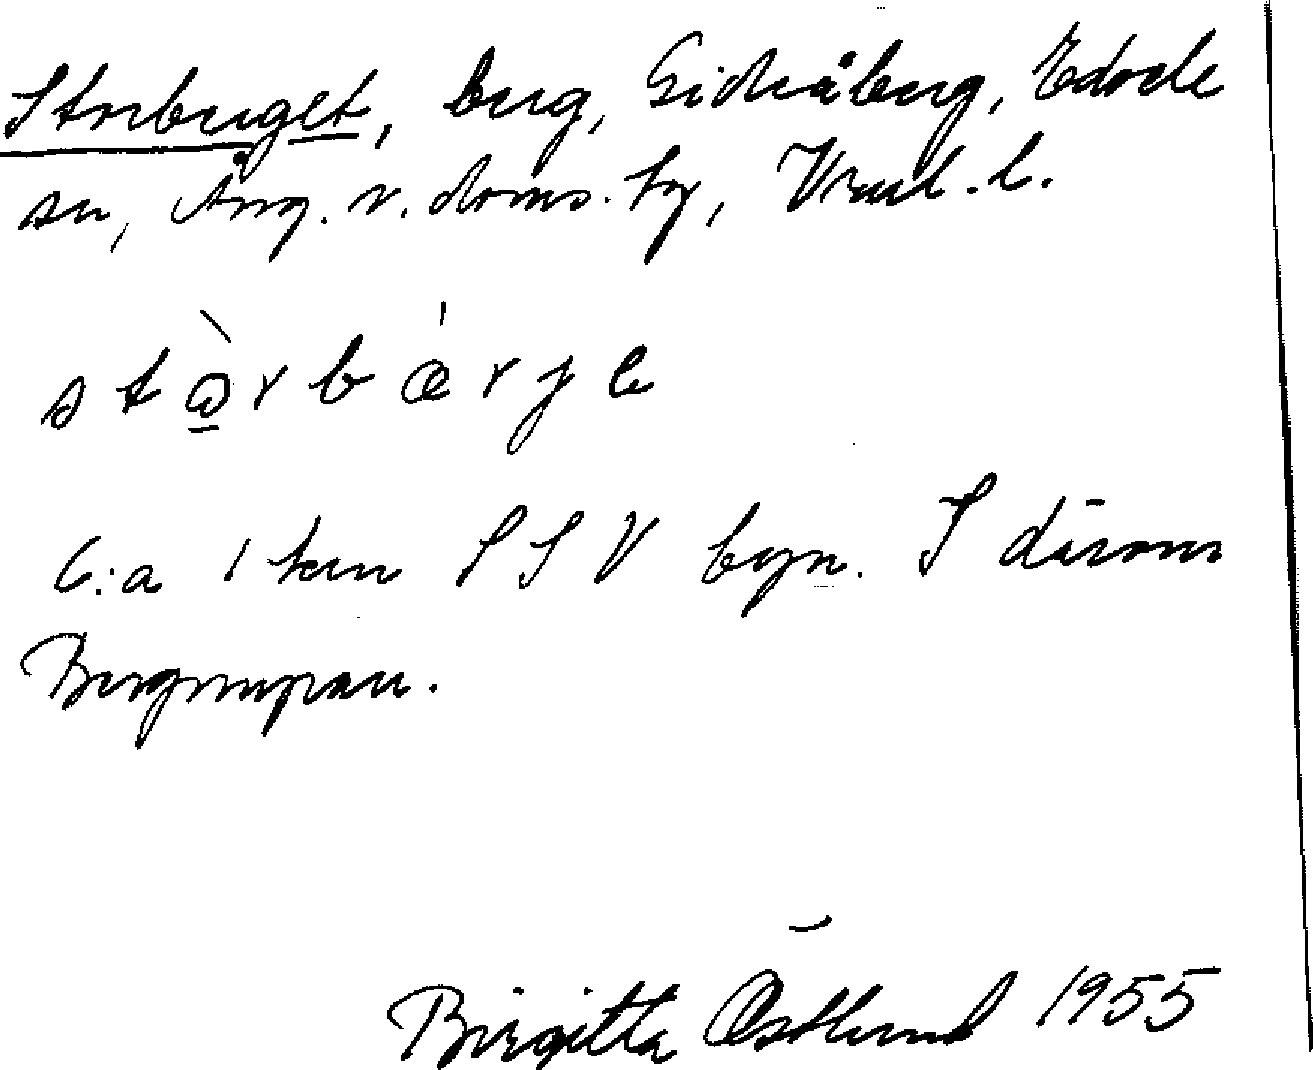 Storberget, berg, Gideåberg, Edsele
sn, Ång. v. doms. hg, Vnl. l.
stòrbǽrje
C:a 1 km SSV byn. S därom
Bergmyran.
Birgitta Östlund 1955